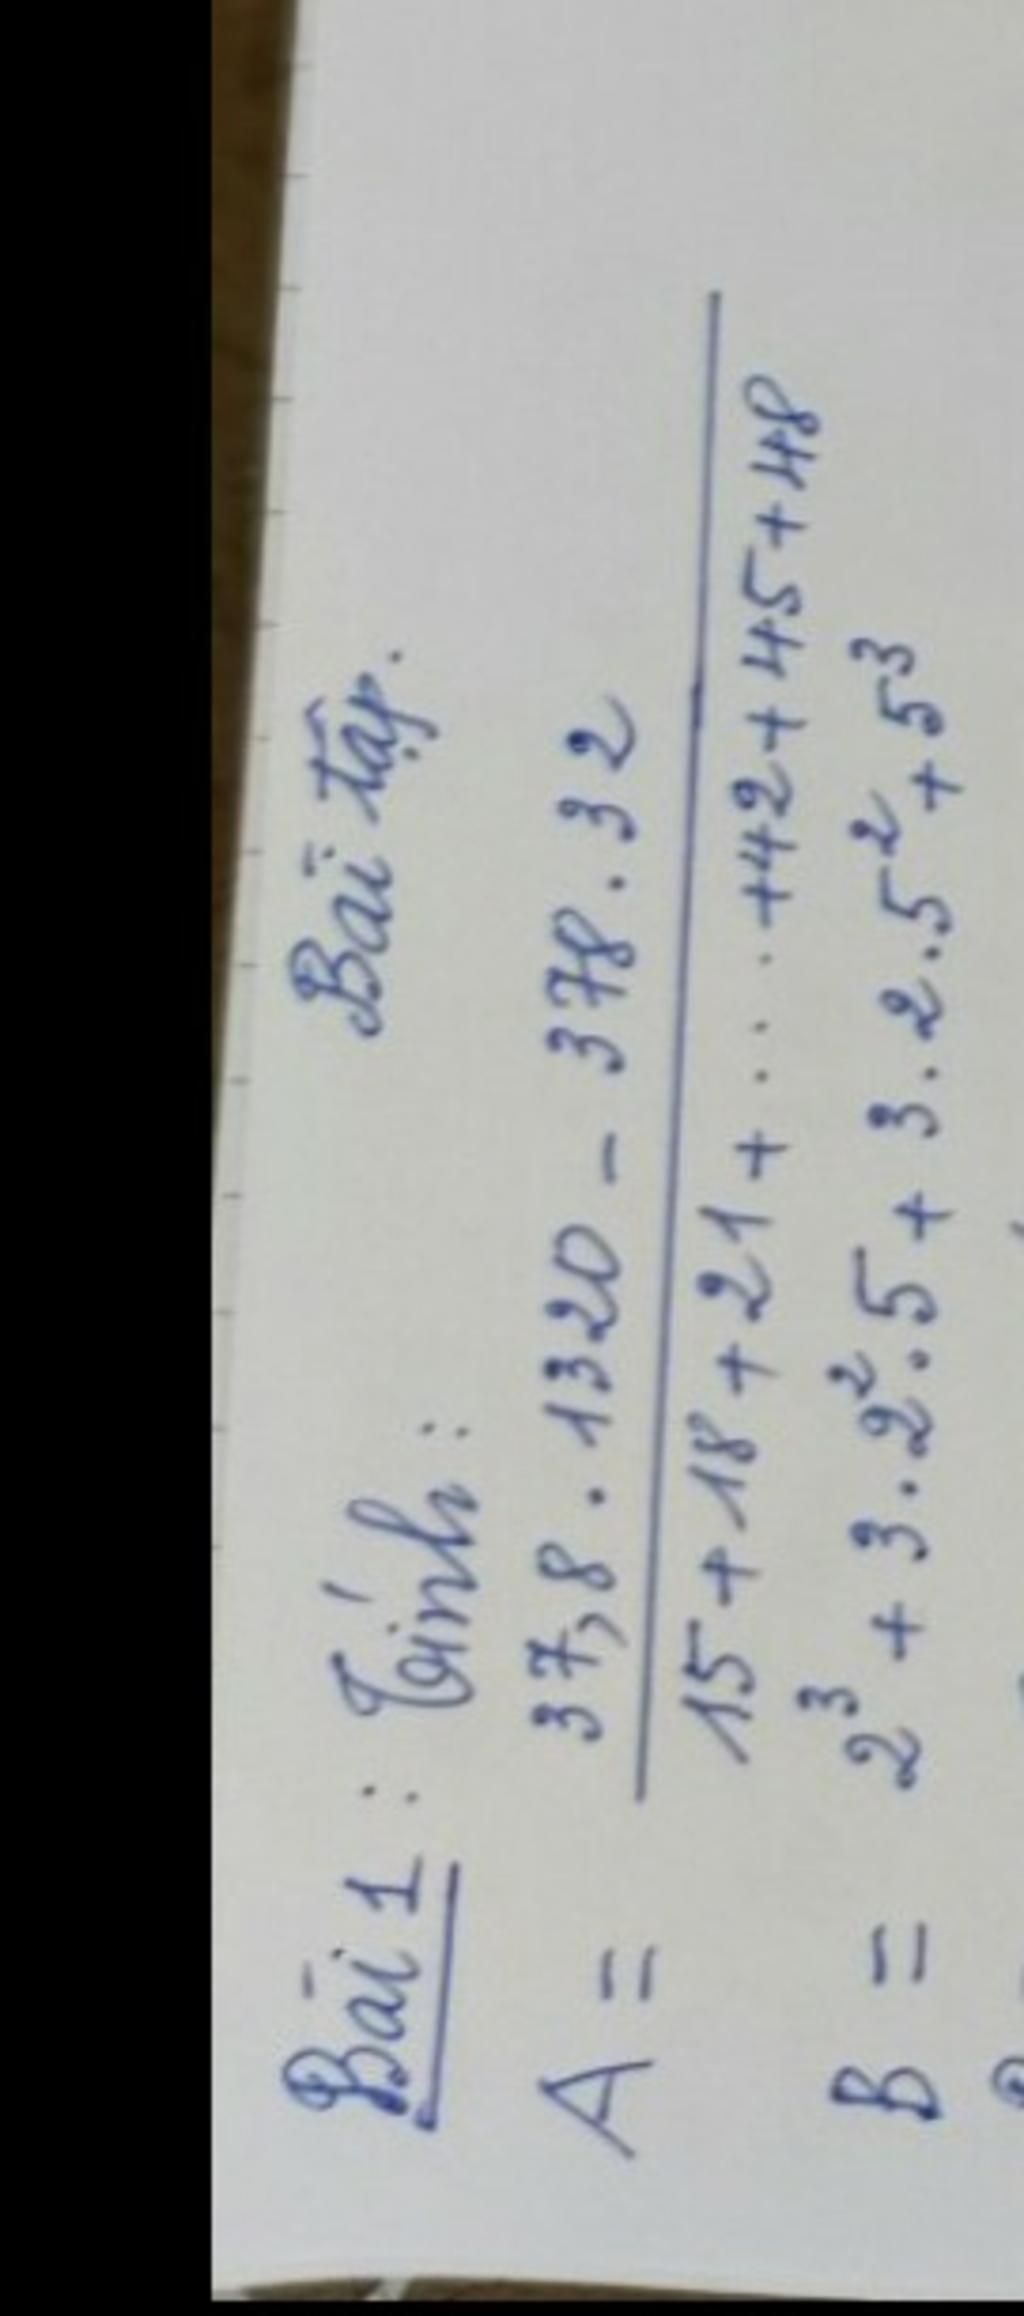 Bài tập.
Bài 1 : Tính :
A = 37,8 . 1320 - 378 . 32
15 + 18 + 21 + .... + 42 + 45 + 48
B = 2³ + 3 . 2² . 5 + 3 . 2 . 5² + 5³